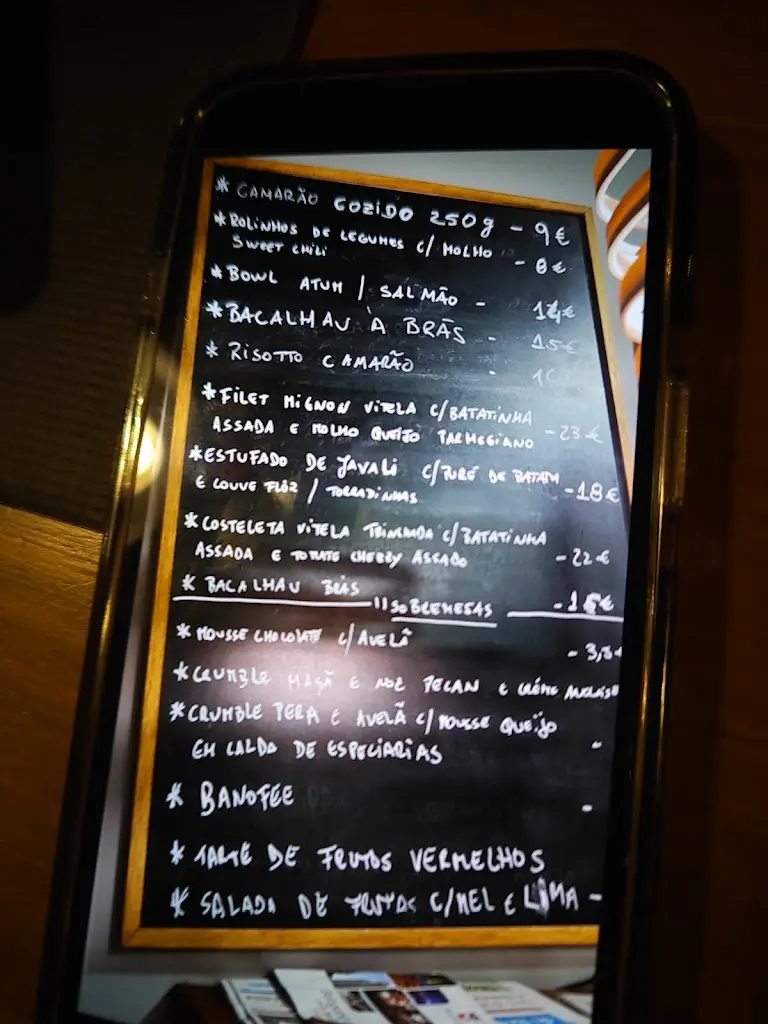 * CAMARÃO COZIDO 250g - 9€
* ROLINHOS DE LEGUMES C/ MOLHO
SWEET CHILI - 8€
* BOWL ATUM / SALMÃO -
* BACALHAU À BRÁS - 15€
* RISOTTO CAMARÃO -
* FILET MIGNON VITELA C/BATATINHA
ASSADA E MOLHO QUEIJO PARMEGIANO - 23€
* ESTUFADO DE JAVALI C/PURÉ DE BATATA
E COUVE FLOR / TORRADINHAS - 18€
* COSTELETA VITELA TRINCHADA C/BATATINHA
ASSADA E TOMATE CHERRY ASSADO - 22€
* BACALHAU BRÁS
"SOBREMESAS
* MOUSSE CHOCOLATE C/ AVELÃ - 3,
* CRUMBLE MAÇÃ E NOZ PECAN E CREME
* CRUMBLE PERA E AVELÃ C/MOUSSE QUEIJO
EM CALDA DE ESPECIARIAS -
* BANOFEE -
* TARTE DE FRUTOS VERMELHOS
* SALADA DE FRUTAS C/MEL E LIMA -